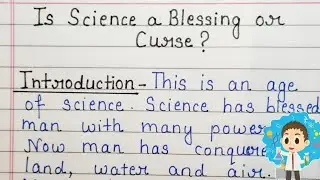 Is Science a Blessing or
Curse?
Introduction- This is an age
of science. Science has blessed
man with many power
Now man has conquere
land, water and air.